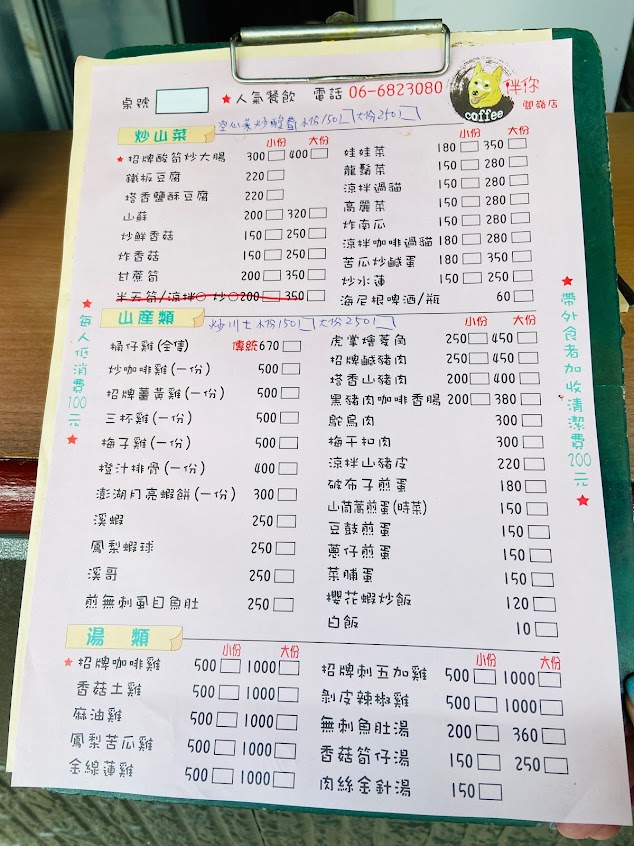 桌號 ★人氣餐飲 電話 06-6823080 伴你
coffee 御嶺店
炒山菜
小份 大份
★招牌酸筍炒大腸 300 400
鐵板豆腐 220
塔香鹽酥豆腐 220
山蘇 200 320
炒鮮香菇 150 250
炸香菇 150 250
甘蔗筍 200 350
半天筍/涼拌○ 炒○200 350
小份 大份
娃娃菜 180 350
龍鬚菜 150 280
涼拌過貓 150 280
高麗菜 150 280
炸南瓜 150 280
涼拌咖啡過貓 180 280
苦瓜炒鹹蛋 180 350
炒水蓮 150 250
海尼根啤酒/瓶 60
山產類
大份150 大份250
桶仔雞(全隻) 傳統670
炒咖啡雞(一份) 500
招牌薑黃雞(一份) 500
三杯雞(一份) 500
梅子雞(一份) 500
橙汁排骨(一份) 400
澎湖月亮蝦餅(一份) 300
溪蝦 250
鳳梨蝦球 250
溪哥 250
煎無刺虱目魚肚 250
小份 大份
虎掌燴菱角 250 450
招牌鹹豬肉 250 450
塔香山豬肉 200 400
黑豬肉咖啡香腸 200 380
鴕鳥肉 300
梅干扣肉 300
涼拌山豬皮 220
破布子煎蛋 180
山茼蒿煎蛋(時菜) 150
豆鼓煎蛋 150
蔥仔煎蛋 150
菜脯蛋 150
櫻花蝦炒飯 120
白飯 10
湯類
小份 大份
★招牌咖啡雞 500 1000
香菇土雞 500 1000
麻油雞 500 1000
鳳梨苦瓜雞 500 1000
金線蓮雞 500 1000
小份 大份
招牌刺五加雞 500 1000
剝皮辣椒雞 500 1000
無刺魚肚湯 200 360
香菇筍仔湯 150 250
肉絲金針湯 150
★每人低消費100元★
★帶外食者加收清潔費200元★